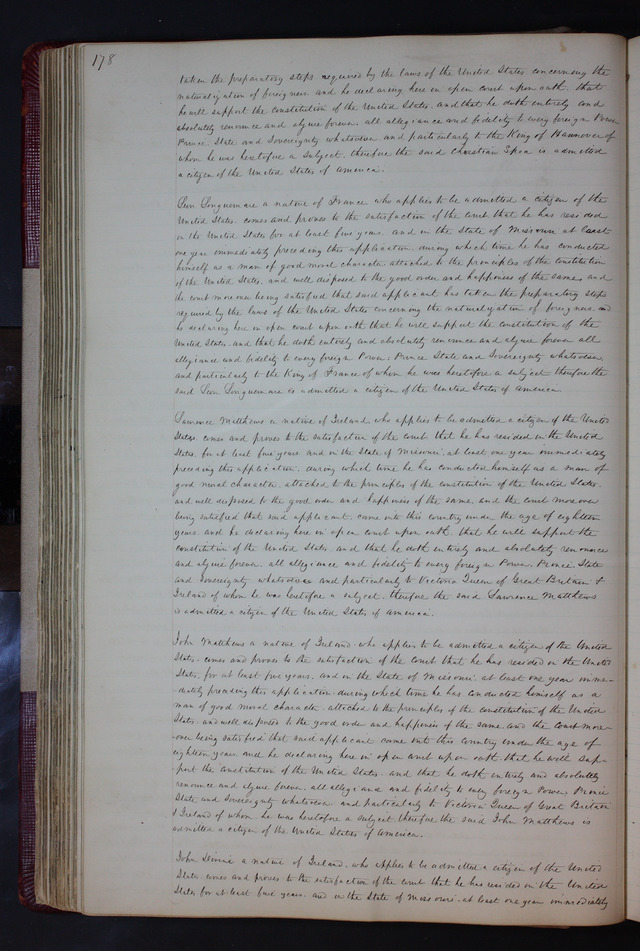 178
taken the preparatory steps required by the laws of the United States concerning the
naturalization of foreigners. and he declaring here in open court upon oath. that
he will support the constitution of the United States. and that he doth entirely and
absolutely renounce and abjure forever. all allegiance and fidelity to every foreign Power
Prince, State and Sovereignty whatsoever and particularly to the King of Hannover of
whom he was heretofore a subject. therefore the said Christian Spea is admitted
a citizen of the United States of America.
Leon Longuemare a native of France who applies to be admitted a citizen of the
United States. comes and proves to the satisfaction of the court that he has resided
in the United States for at least five years. and in the State of Missouri at least
one year immediately preceding this application. during which time he has conducted
himself as a man of good moral character attached to the principles of the constitution
of the United States. and well disposed to the good order and happiness of the same. and
the court moreover being satisfied that said applicant has taken the preparatory steps
required by the laws of the United States concerning the naturalization of foreigners. and
he declaring here in open court upon oath that he will support the constitution of the
United States. and that he doth entirely and absolutely renounce and abjure forever all
allegiance and fidelity to every foreign Power, Prince State and Sovereignty whatsoever
and particularly to the King of France of whom he was heretofore a subject therefore the
said Leon Longuemare is admitted a citizen of the United States of America.
Lawrence Matthews a native of Ireland who applies to be admitted a citizen of the United
States. comes and proves to the satisfaction of the court that he has resided in the United
States, for at least five years. and in the State of Missouri. at least one year immediately
preceding this application. during which time he has conducted himself as a man of
good moral character attached to the principles of the constitution of the United States.
and well disposed to the good order and happiness of the same. and the court moreover
being satisfied that said applicant. came into this country under the age of eighteen
years. and he declaring here in open court upon oath. that he will support the
constitution of the United States and that he doth entirely and absolutely renounce
and abjure forever. all allegiance and fidelity to every foreign Power, Prince, State
and Sovereignty whatsoever and particularly to Victoria Queen of Great Britain &
Ireland of whom he was heretofore a subject. therefore the said Lawrence Matthews
is admitted a citizen of the United States of America.
John Matthews a native of Ireland who applies to be admitted a citizen of the United
States. comes and proves to the satisfaction of the court that he has resided in the United
States, for at least five years. and in the State of Missouri at least one year imme-
diately preceding this application. during which time he has conducted himself as a
man of good moral character. attached to the principles of the constitution of the United
States. and well disposed to the good order and happiness of the same. and the court more-
over being satisfied that said applicant came into this country under the age of
eighteen years and he declaring here in open court upon oath. that he will sup-
port the constitution of the United States. and that he doth entirely and absolutely
renounce and abjure forever. all allegiance and fidelity to every foreign Power, Prince
State and Sovereignty whatsoever and particularly to Victoria Queen of Great Britain
& Ireland of whom he was heretofore a subject. therefore the said John Matthews is
admitted a citizen of the United States of America.
John Devine a native of Ireland. who applies to be admitted a citizen of the United
States. comes and proves to the satisfaction of the court that he has resided in the United
States for at least five years. and in the State of Missouri. at least one year immediately